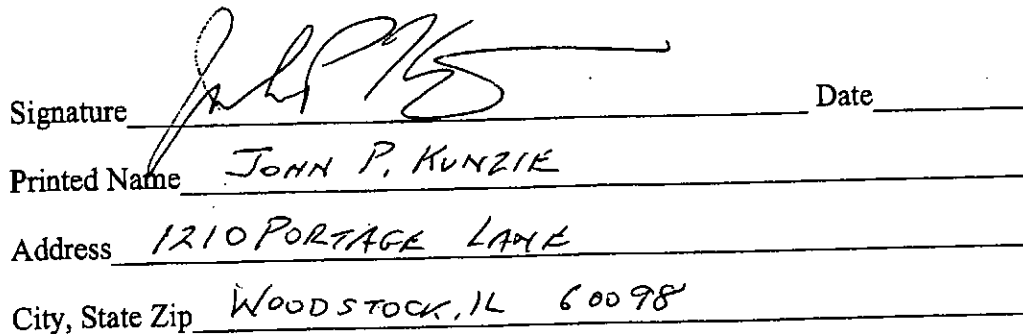 Signature Date
Printed Name JOHN P. KUNZIE
Address 1210 PORTAGE LANE
City, State Zip WOODSTOCK, IL 60098